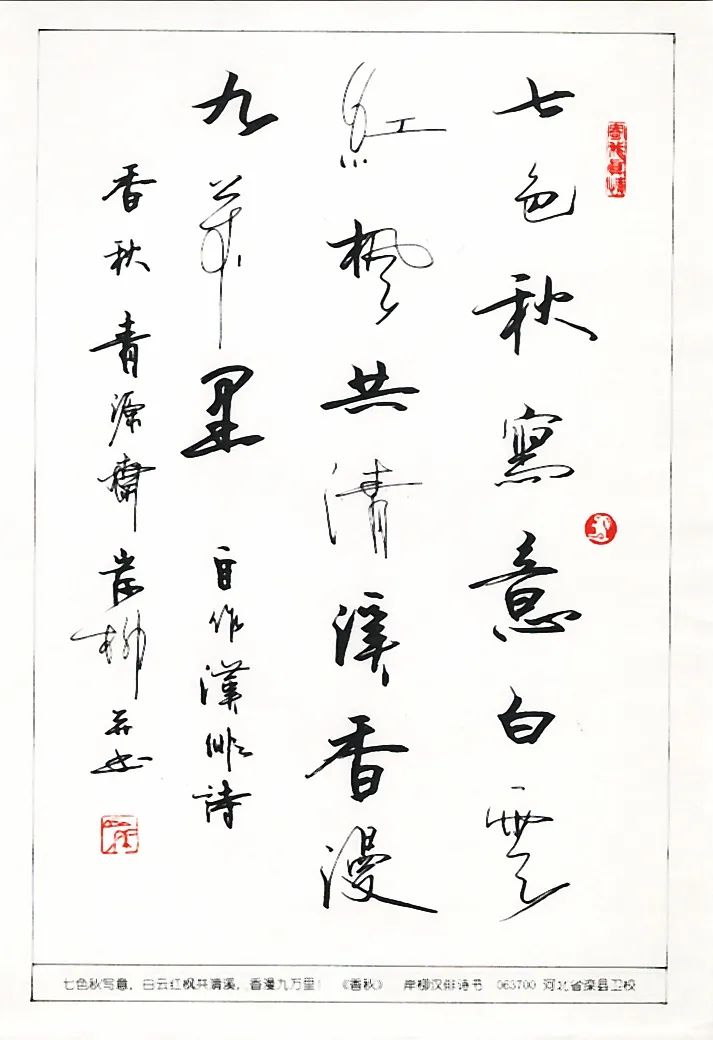 七色秋寫意白雲
紅楓共清溪香漫
九萬里
自作漢俳詩
香秋 青源齋岸柳并书
七色秋写意，白云红枫共清溪，香漫九万里！ 《香秋》 岸柳汉俳诗书 063700 河北省滦县卫校